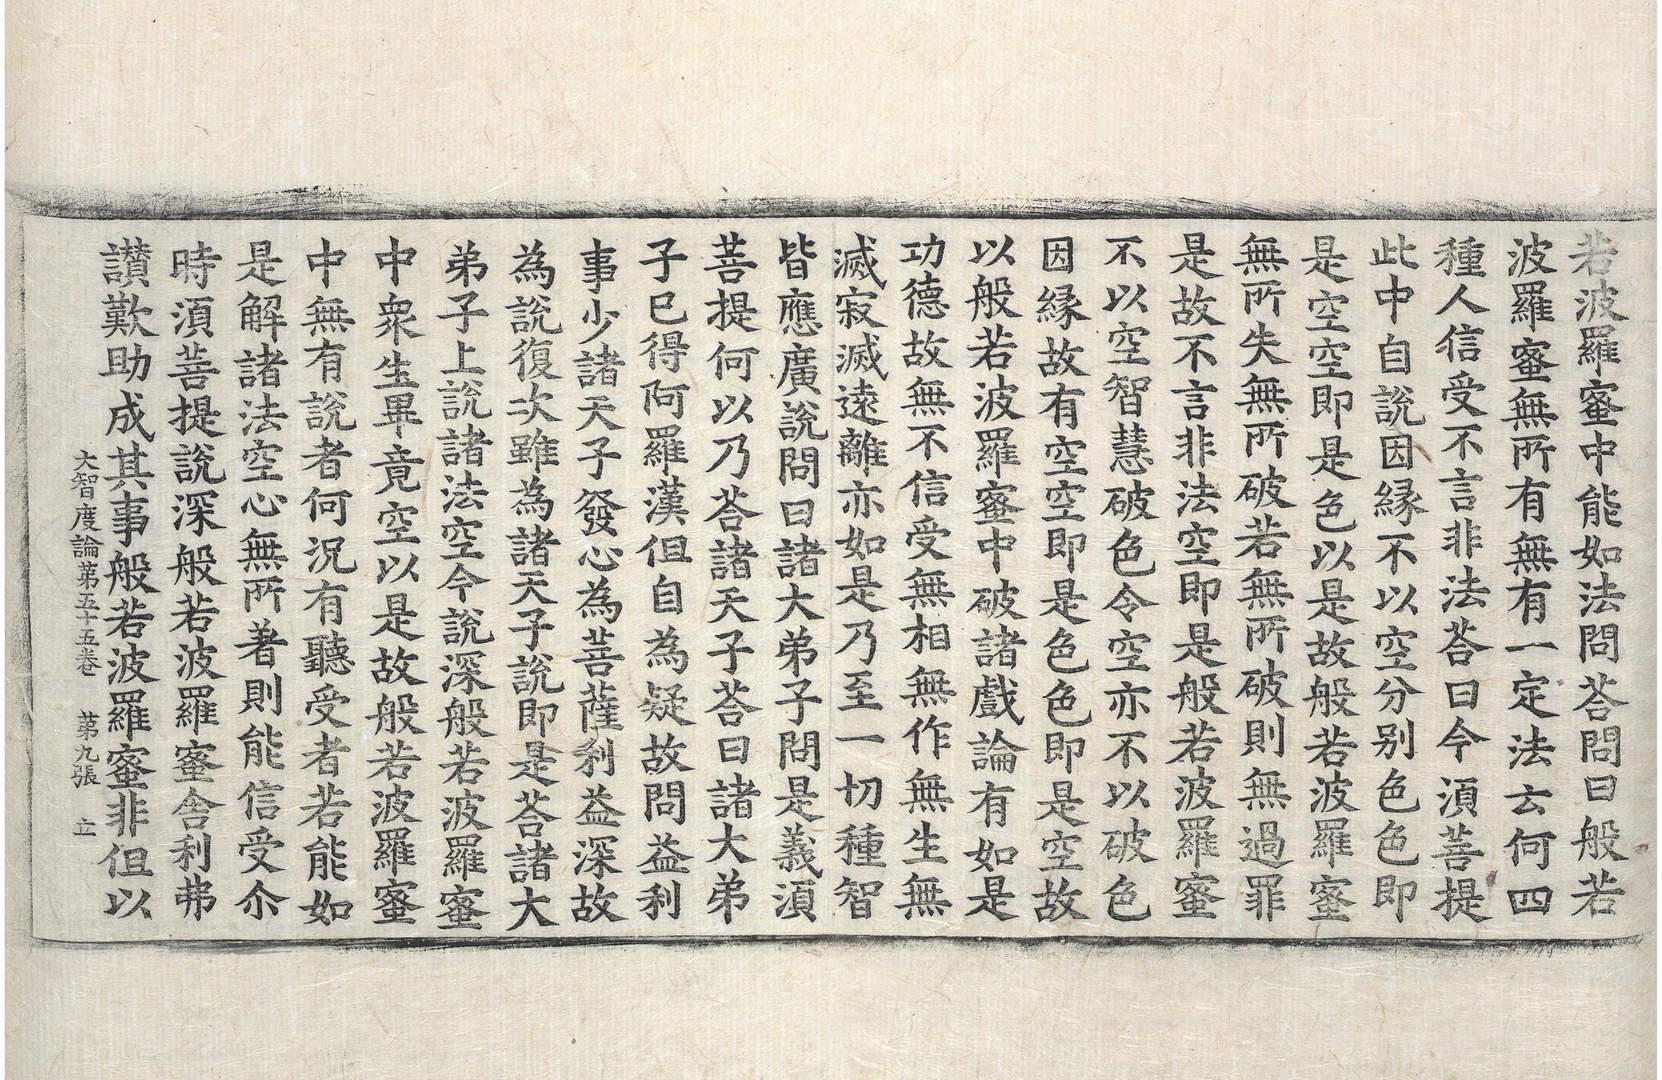 若波羅蜜中能如法問荅問曰般若
波羅蜜無所有無有一定法云何四
種人信受不言非法荅曰今湏菩提
此中自說因縁不以空分別色色即
是空空即是色以是故般若波羅蜜
無所失無所破若無所破則無過罪
是故不言非法空即是般若波羅蜜
不以空智慧破色令空亦不以破色
因縁故有空空即是色色即是空故
以般若波羅蜜中破諸戲論有如是
功德故無不信受無相無作無生無
滅寂滅遠離亦如是乃至一切種智
皆應廣說問曰諸大弟子問是義湏
菩提何以乃荅諸天子荅曰諸大弟
子已得阿羅漢但自為疑故問益利
事少諸天子發心為菩薩利益深故
為說復次雖為諸天子說即是荅諸大
弟子上說諸法空今說深般若波羅蜜
中衆生畢竟空以是故般若波羅蜜
中無有說者何況有聽受者若能如
是解諸法空心無所著則能信受尒
時湏菩提說深般若波羅蜜舍利弗
讃歎助成其事般若波羅蜜非但以
大智度論苐五十五卷 苐九張 立